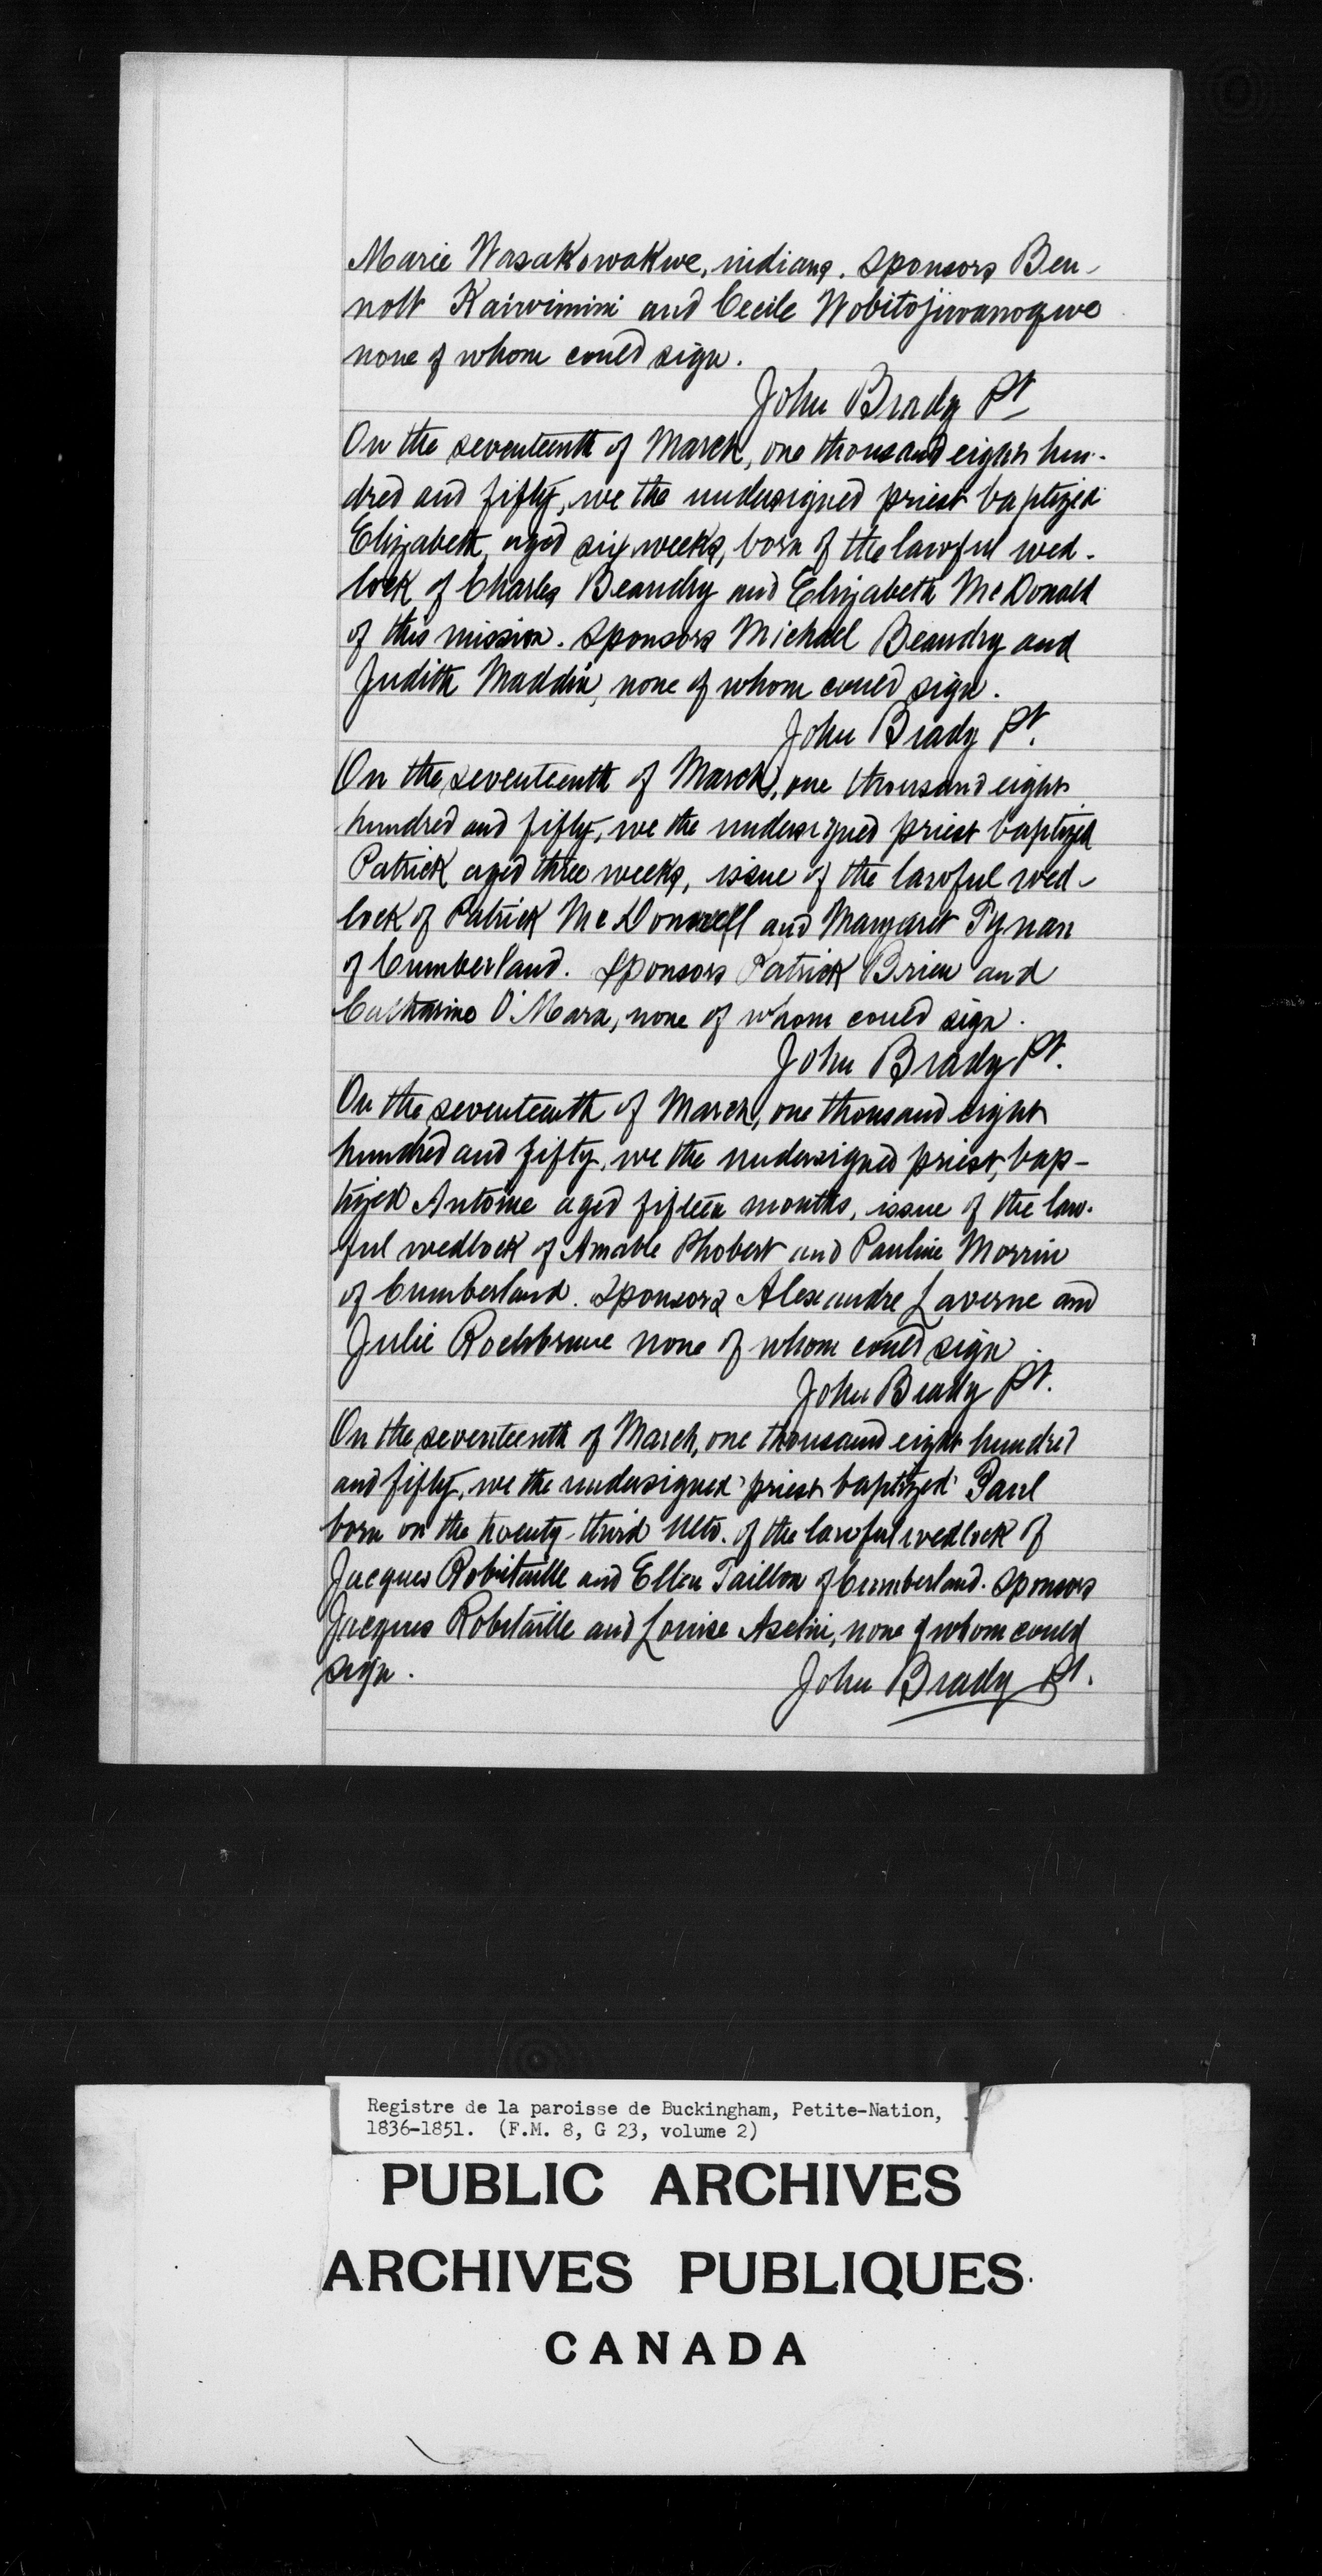 Marie Wasakowakwe, indians. Sponsors Ben-
noit Kaiwimini and Cecile Wobitojiwanoqwe
none of whom could sign.
John Brady Pt
On the seventeenth of March, one thousand eight hun-
dred and fifty, we the undersigned priest baptized
Elizabeth, aged six weeks, born of the lawful wed-
lock of Charles Beaudry and Elizabeth McDonald
of this mission. Sponsors Michael Beaudry and
Judith Maddin, none of whom could sign.
John Brady Pt.
On the seventeenth of March, one thousand eight
hundred and fifty, we the undersigned priest baptized
Patrick aged three weeks, issue of the lawful wed-
lock of Patrick McDonnell and Margaret Tynan
of Cumberland. Sponsors Patrick Brien and
Catharine O'Mara, none of whom could sign.
John Brady Pt.
On the seventeenth of March, one thousand eight
hundred and fifty, we the undersigned priest, bap-
tized Antoine aged fifteen months, issue of the law-
ful wedlock of Amable Phobert and Pauline Morrin
of Cumberland. Sponsors Alexandre Laverne and
Julie Rochbrune none of whom could sign.
John Brady Pt.
On the seventeenth of March, one thousand eight hundred
and fifty, we the undersigned priest baptized Paul
born on the twenty-third Ulto. of the lawful wedlock of
Jacques Robitaille and Ellen Taillon of Cumberland. Sponsors
Jacques Robitaille and Louise Aselin, none of whom could
sign.
John Brady Pt.
Registre de la paroisse de Buckingham, Petite-Nation,
1836-1851. (F.M. 8, G 23, volume 2)
PUBLIC ARCHIVES
ARCHIVES PUBLIQUES
CANADA